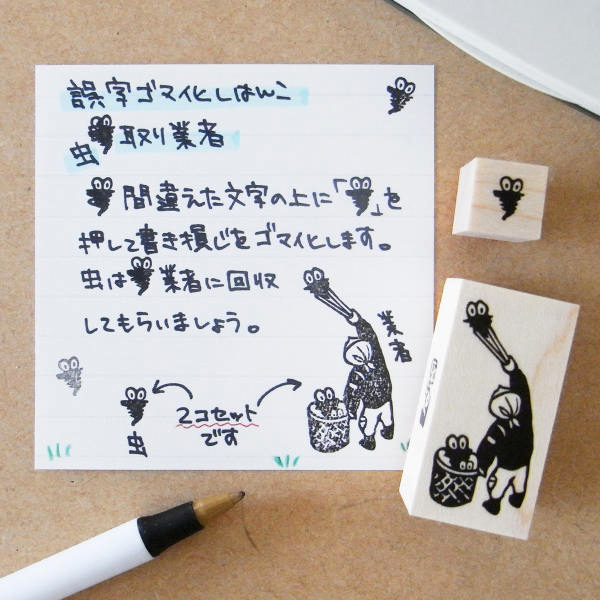 誤字ゴマイヒしはんこ
虫取り業者
間違えた文字の上に「」を
押して書き損じをゴマイヒします。
虫は業者に回収
してもらいましょう。
業者
2コセット
です
虫